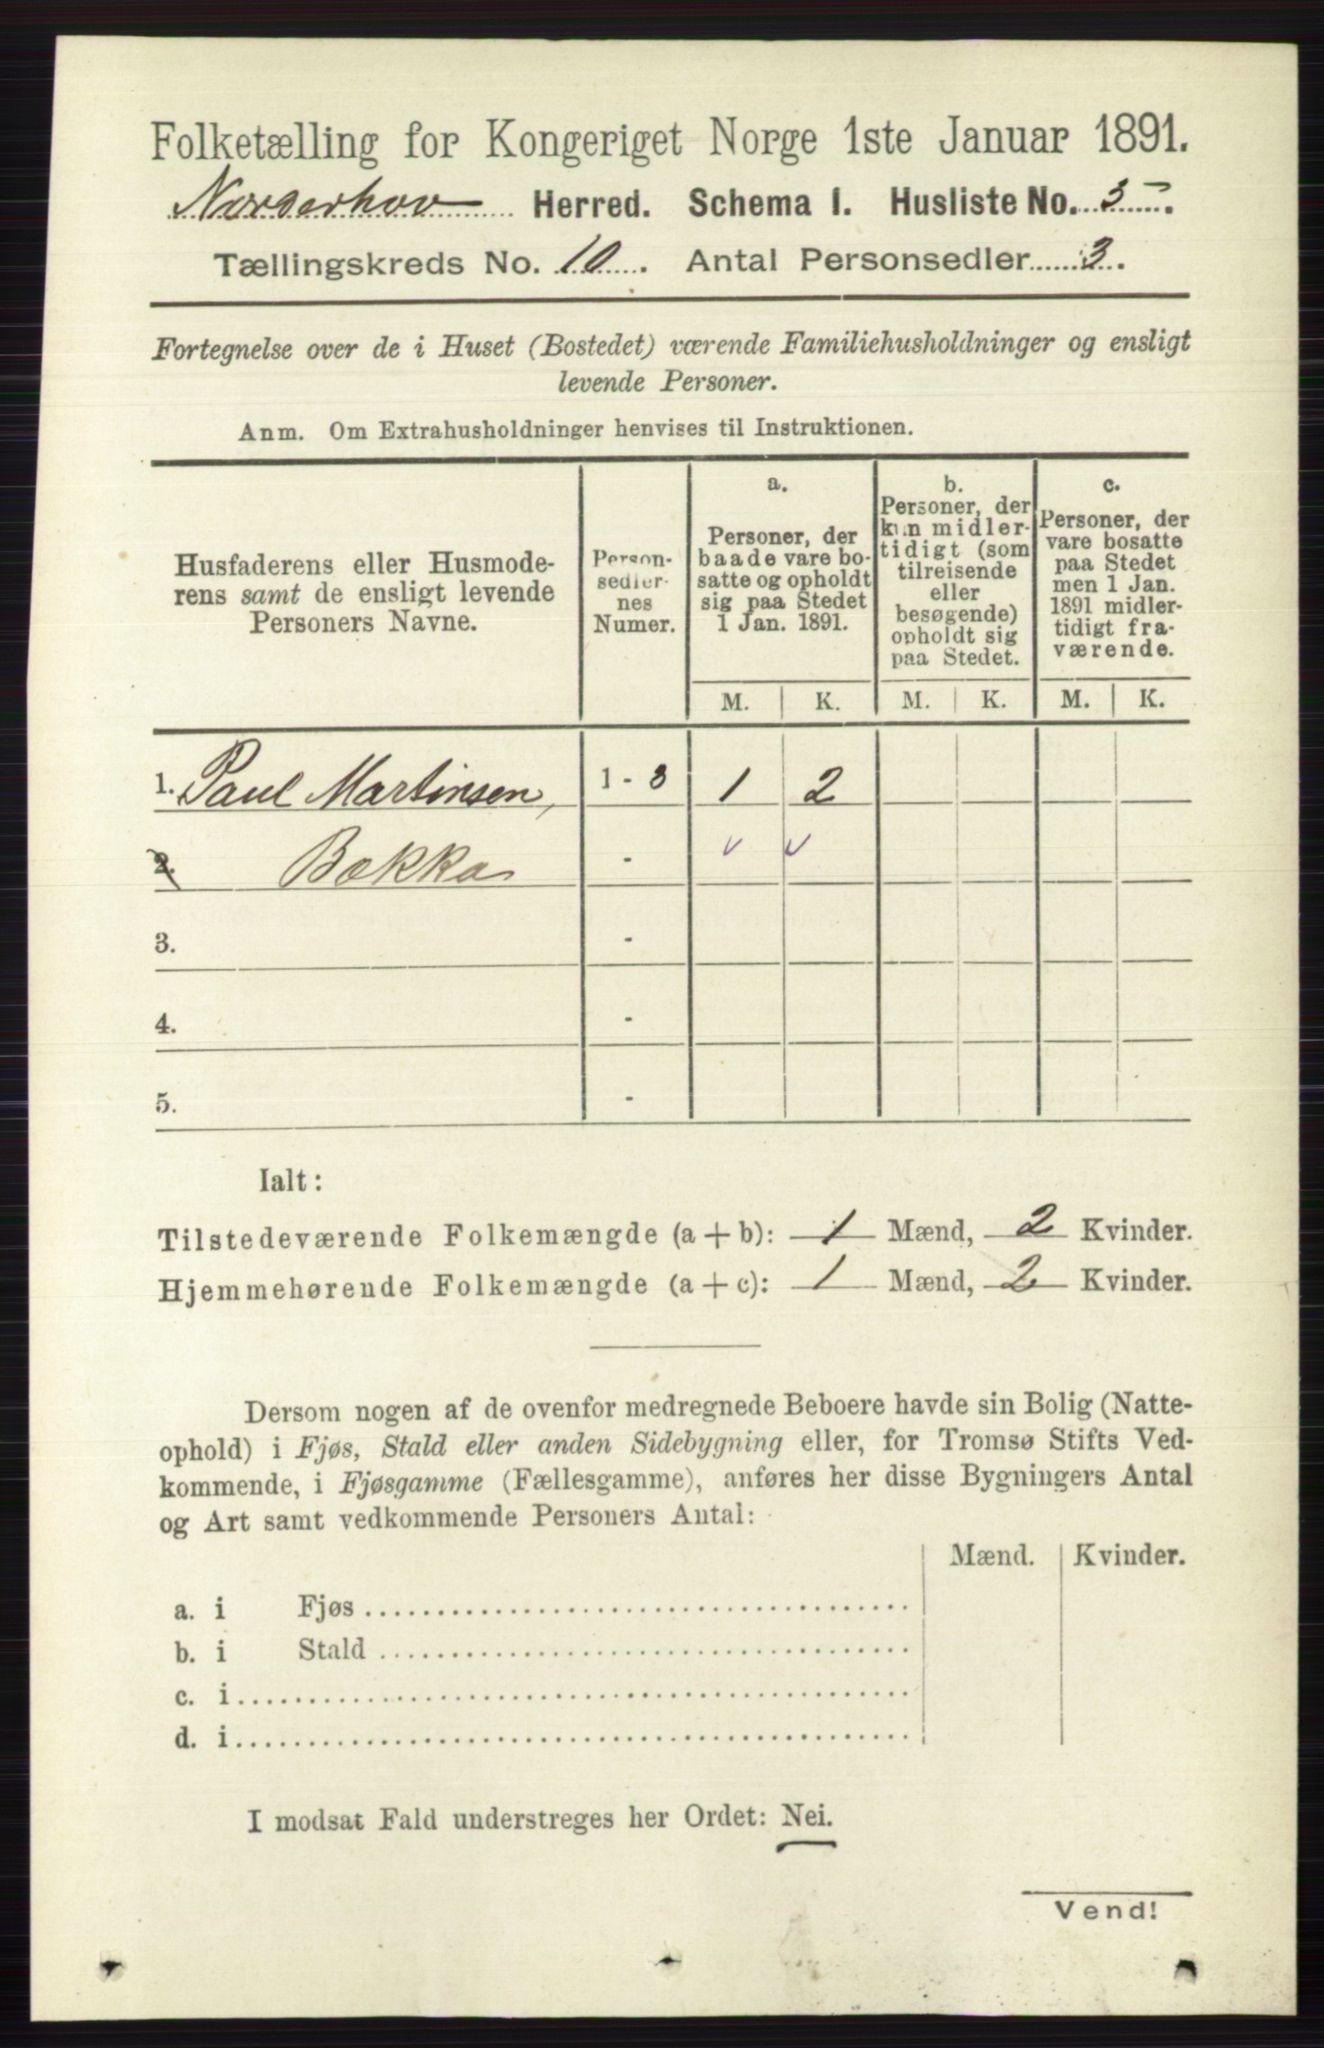 Folketælling for Kongeriget Norge 1ste Januar 1891.
Norderhov Herred. Schema I. Husliste No. 5.
Tællingskreds No. 10. Antal Personsedler 3.
Fortegnelse over de i Huset (Bostedet) værende Familiehusholdninger og ensligt
levende Personer.
Anm. Om Extrahusholdninger henvises til Instruktionen.
Husfaderens eller Husmode-
rens samt de ensligt levende
Personers Navne.
Person-
sedler-
nes
Numer.
a.
Personer, der
baade vare bo-
satte og opholdt
sig paa Stedet
1 Jan. 1891.
b.
Personer, der
kun midler-
tidigt (som
tilreisende
eller
besøgende)
opholdt sig
paa Stedet.
c.
Personer, der
vare bosatte
paa Stedet
men 1 Jan.
1891 midler-
tidigt fra-
værende.
M. K. M. K. M. K.
1. Paul Martinsen, 1 - 3 1 2
2. Bakka -
3. -
4. -
5. -
Ialt:
Tilstedeværende Folkemængde (a + b): 1 Mænd, 2 Kvinder.
Hjemmehørende Folkemængde (a + c): 1 Mænd, 2 Kvinder.
Dersom nogen af de ovenfor medregnede Beboere havde sin Bolig (Natte-
ophold) i Fjøs, Stald eller anden Sidebygning eller, for Tromsø Stifts Ved-
kommende, i Fjøsgamme (Fællesgamme), anføres her disse Bygningers Antal
og Art samt vedkommende Personers Antal:
Mænd. Kvinder.
a. i Fjøs
b. i Stald
c. i
d. i
I modsat Fald understreges her Ordet: Nei.
Vend!